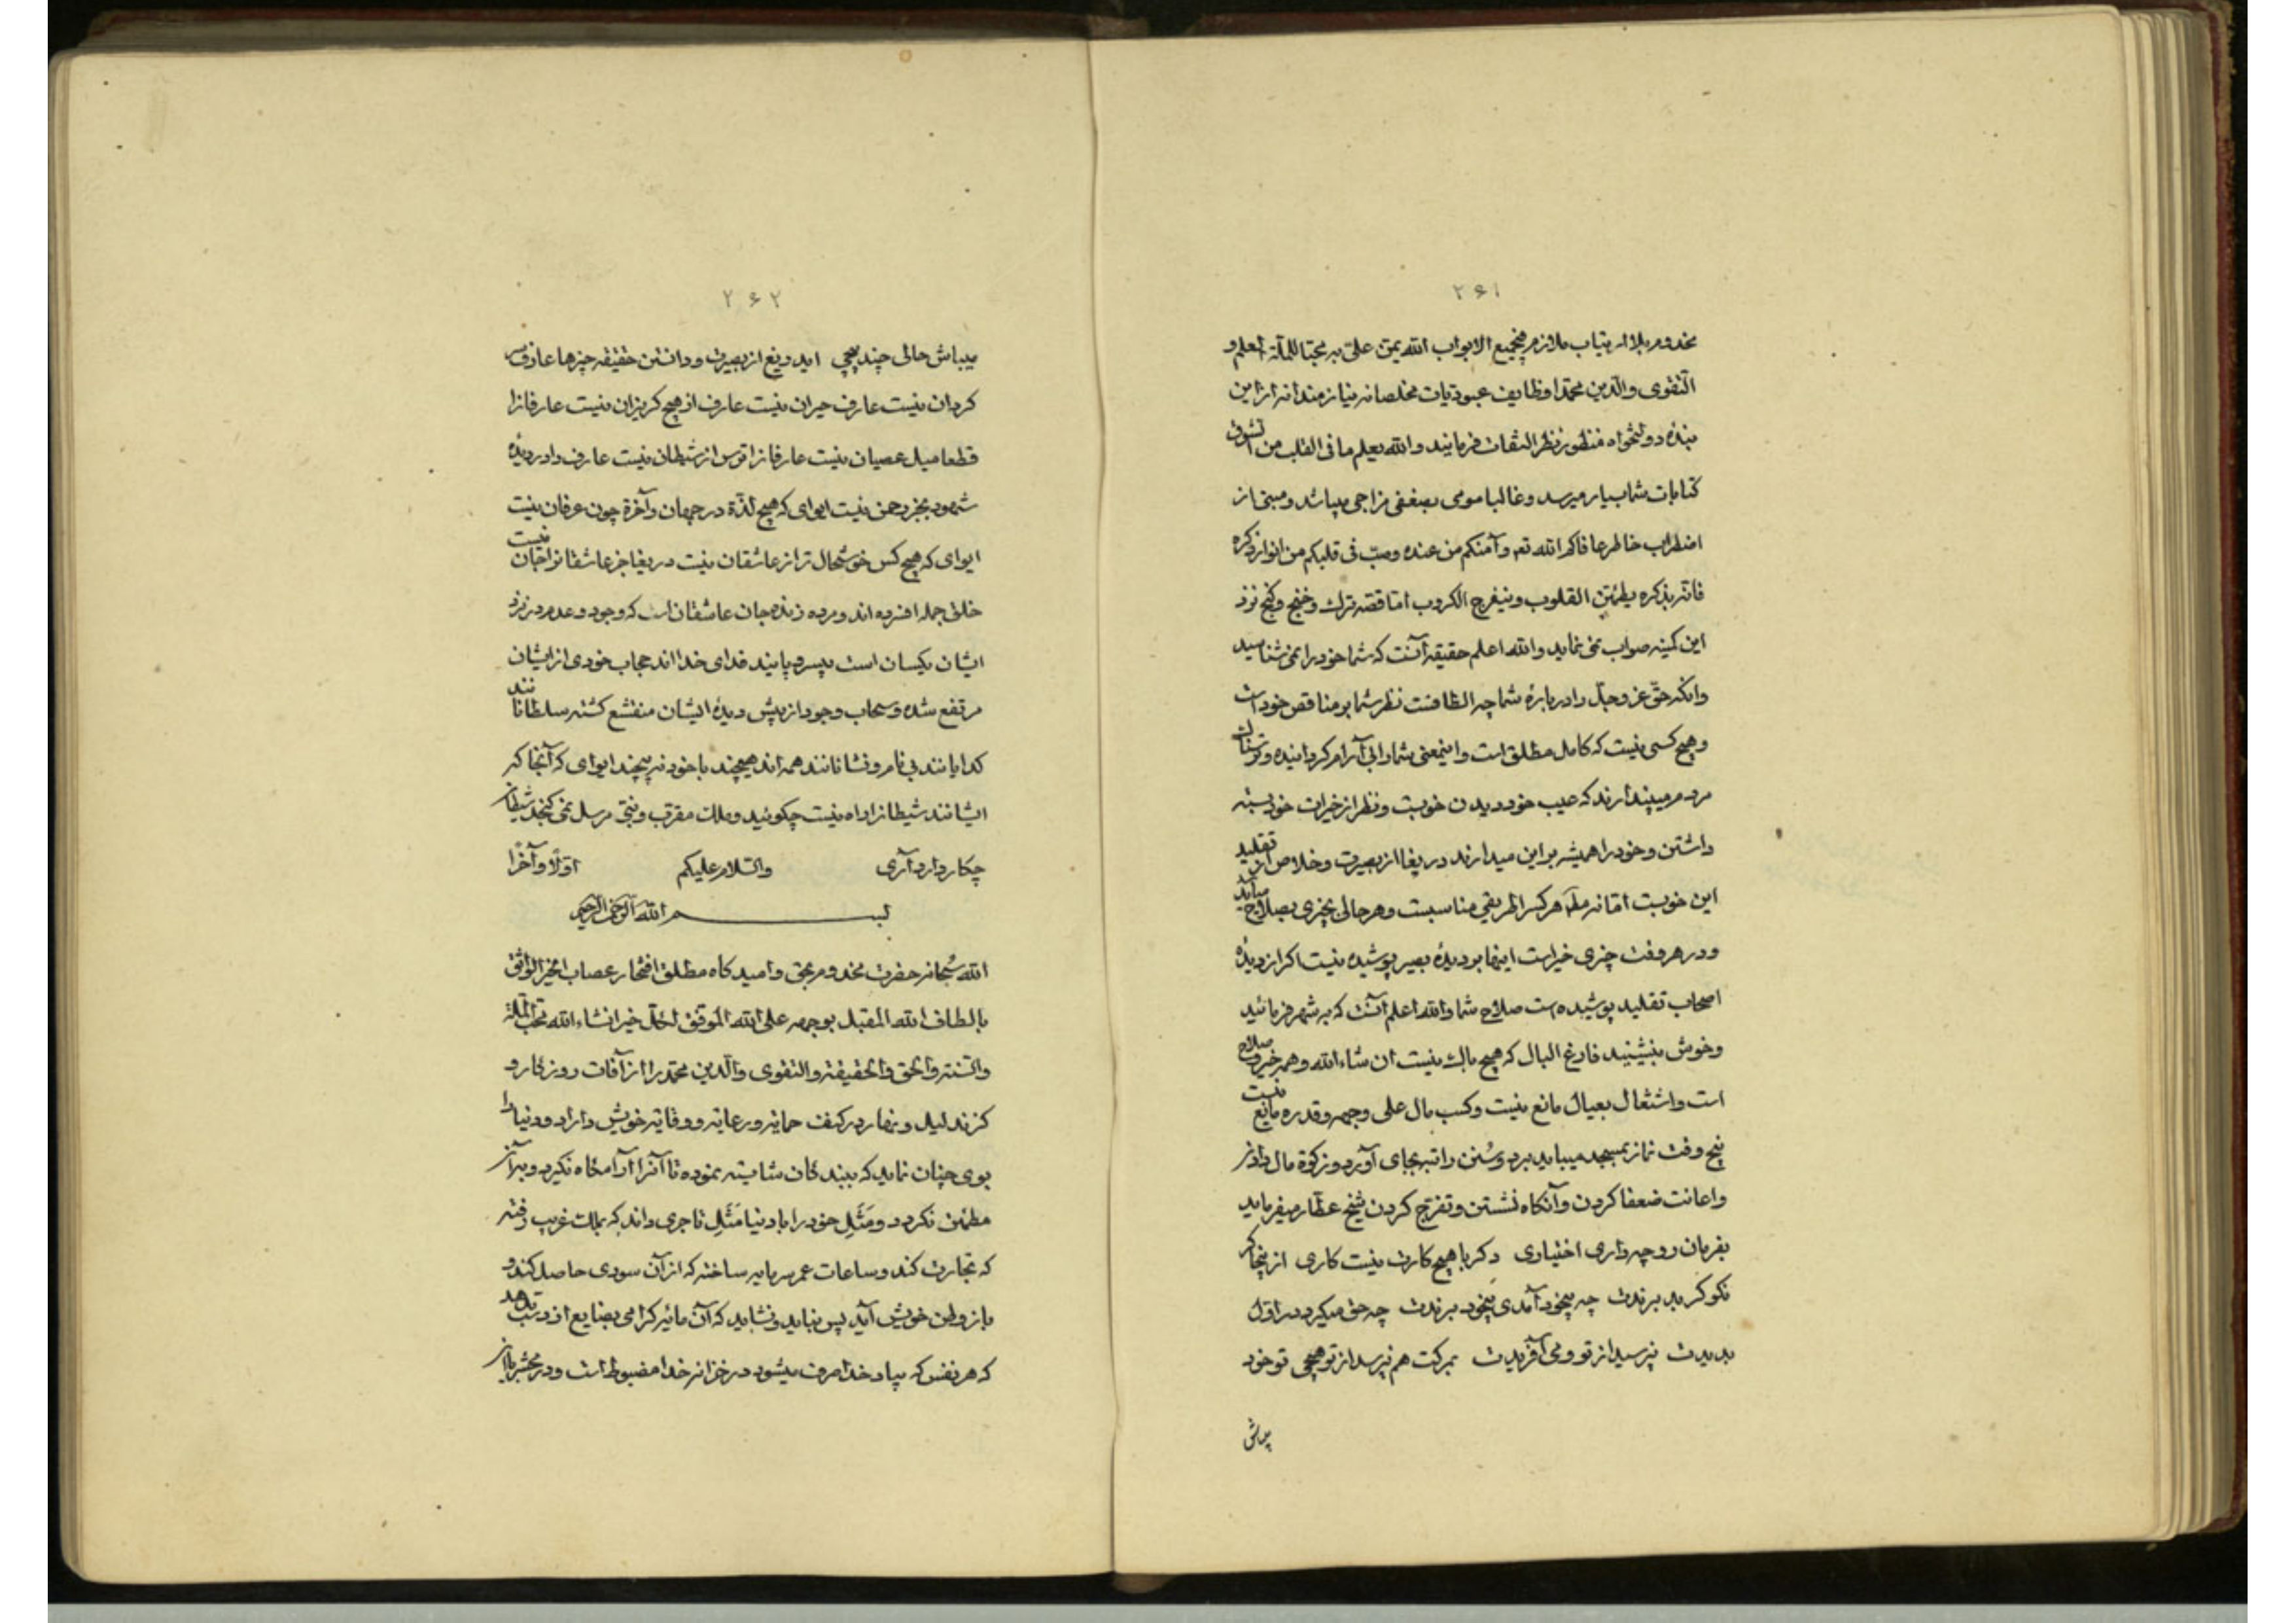 ۲۶۱
مخدوم ملازم بجمیع الابواب الله یمن علی به محبتا للملة اعلم و
التقوی والدین محمدا وظایف عبودیات مخلصانه نیازمندانه از این
بنده دولتخواه منظور نظر التفات فرمایند والله یعلم ما فی القلب من الشوق
کتابات شما بسیار میرسد و غالبا مومی بضعفی مزاجی میباشد و مبنی از
اضطراب خاطر عافاکم الله تع وآمنکم من عنده وصب فی قلبکم من انوار ذکره
فانه بذکره یطمئن القلوب وینفرج الکروب اما قصه ترک و خنج و کنج نزد
این کمینه صواب نمی نماید والله اعلم حقیقه آنست که شما خود را نمی شناسید
وانکه حق عز وجل را در باره شما چه الطافست نظر شما بر مناقص خود است
و هیچ کسی نیست که کامل مطلق است و اینمعنی شما را بی آرام کردانیده و
مردم میپندارند که عیب خود دیدن خوبست و نظر از خیرات خود بسته
داشتن و خود را همیشه بر این میدارند دریغا از بصیرت و خلاص از تقلید
این خوبست اما نه مدام هر کس را طریقی مناسبست و هر حالی بچیزی بصلاح میآید
و در هر وقت چیزی خیر است اینها بر دیده بصیر پوشیده نیست اکر از دیده
اصحاب تقلید پوشیده است صلاح شما والله اعلم آنست که به شهر فرمائید
و خوش بنشینید فارغ البال که هیچ باک نیست ان شاء الله و همه خیر و صلاح
است و اشتغال بعیال مانع نیست و کسب مال علی وجهه و قدره مانع نیست
پنج وقت نماز بمسجد میباید برد و سنن راتبه بجای آورد و زکوة مال دادن
واعانت ضعفا کردن وآنکاه نشستن و تفرج کردن شیخ عطار میفرماید
بفرمان رو چه داری اختیاری دکر با هیچ کارت نیست کاری از پنجا کر
نکو کر بد برندت چه بیخود آمدی بیخود برندت چه حق میکرد در اول
بدیدت نپرسید از تو و می آفریدت بمرکت هم نپرسد از تو هیچی تو خود
میباش
۲۶۲
میباش حالی چند پیچی ای دریغ از بصیرت و دانستن حقیقه چیزها عارف سر
کردان نیست عارف حیران نیست عارف از هیچ کریزان نیست عارفانرا
قطعا میل عصیان نیست عارفانرا ترس از شیطان نیست عارف را در دیده
شهود بجز رحمن نیست ایوای که هیچ لذة در جهان وآخرة چون عرفان نیست
ایوای که هیچ کس خوشحال تر از عاشقان نیست دریغا جز عاشقانرا جان نیست
خلق جمله افسرده اند و مرده زنده جان عاشقان است که وجود و عدم در نزد
ایشان یکسان است بیسر و پایند فدای خدا اند حجاب خودی از ایشان
مرتفع شده و سحاب وجود از پیش دیده ایشان منقشع کشته سلطانانند
کدایانند بی نام و نشانانند همه اند هیچند با خود نه پیچند ایوای که آنجا که
ایشانند شیطانرا راه نیست چکوئید و ملک مقرب و نبی مرسل نمی کنجد شیطان
چکار دارد آری والسلام علیکم اولا وآخرا
بسم الله الرحمن الرحیم
الله سبحانه حضرت مخدوم محق و امید کاه مطلق افتخار عصابه الخیر الواثق
بالطاف الله المقبل بوجهه علی الله الموفق لکل خیر انشاء الله محب الملة
والسنة والحق والحقیقة والتقوی والدین محمد را از آفات روزکار و
کزند لیل و نهار در کنف حمایة و رعایة و وقایة خویش داراد و دنیا را
بوی چنان نماید که ببندکان شایسته نموده تا آنرا آرامکاه نکیرد و بر آن
مطمئن نکردد و مثل خود را با دنیا مثل تاجری داند که بملک غریب رفته
که تجارت کند و ساعات عمر سرمایه ساخته که از آن سودی حاصل کند و
باز وطن خویش آید پس نباید و نشاید که آن مایه کرامی بضایع از دست بدهد
که هر نفس که بیاد خدا صرف میشود در خزانه خدا مضبوط است و در محشر باز